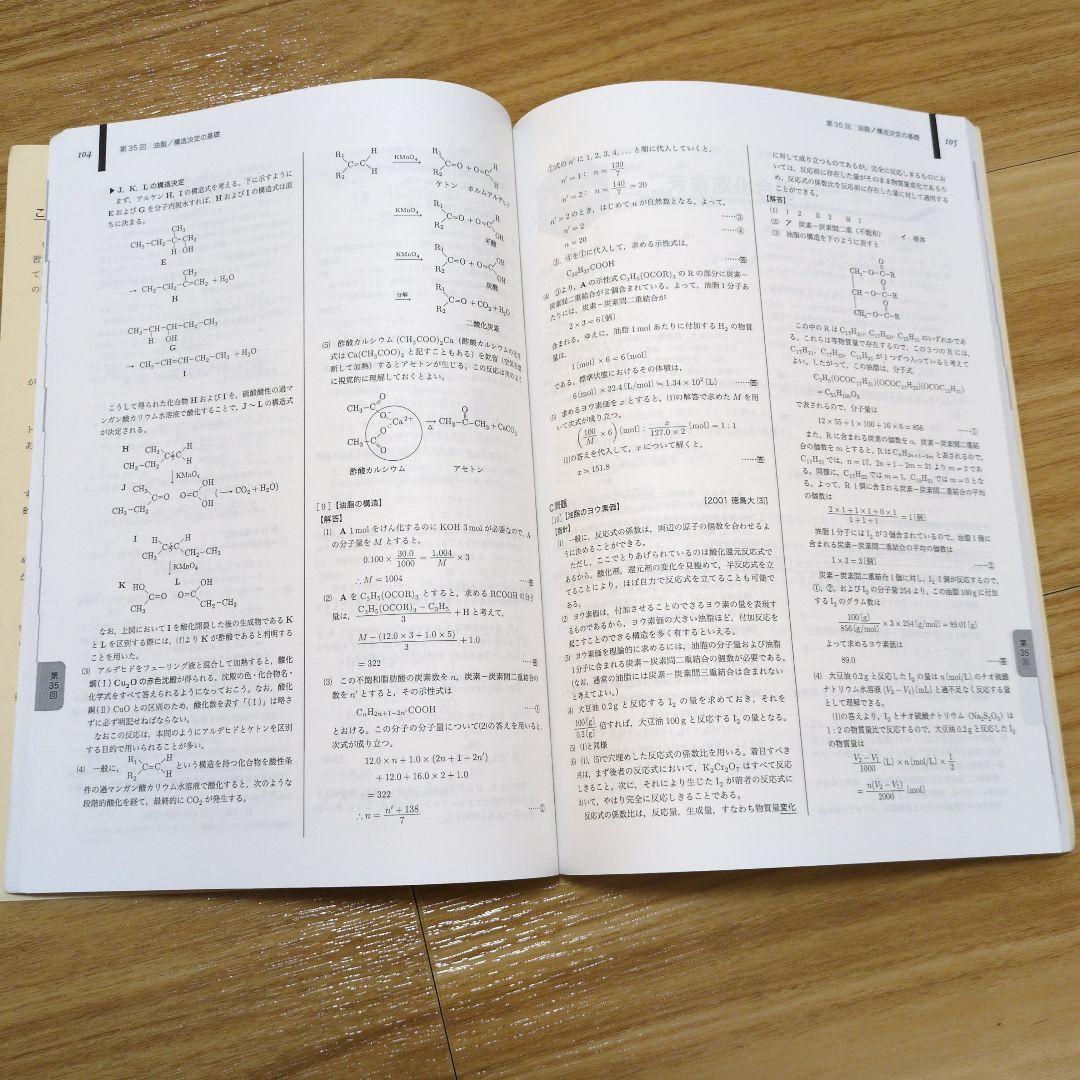 104
第35回 油脂／構造決定の基礎
▶J, K, Lの構造決定
まず，アルケンH, Iの構造式を考える。下に示すように
EおよびGを分子内脱水すれば，HおよびIの構造式は直
ちに決まる。
CH₃
CH₃-CH₂-C-CH₂
H OH
E
CH₃
→ CH₃-CH₂-C=CH₂ + H₂O
H
CH₃-CH-CH-CH₂-CH₃
H OH
G
→ CH₃-CH=CH-CH₂-CH₃ + H₂O
I
こうして得られた化合物HおよびIを，硫酸酸性の過マ
ンガン酸カリウム水溶液で酸化することで，J〜Lの構造式
が決定される。
H CH₃ H
CH₃-CH₂ C=C H
KMnO₄
J CH₃ C=O O=C OH (→CO₂+H₂O)
CH₃-CH₂ OH
I H C=C H
CH₃ CH₂-CH₃
KMnO₄
K HO C=O L OH O=C
CH₃ CH₂-CH₃
なお，上図においてIを酸化開裂した後の生成物であるK
とLを区別する際には，(f)よりKが酢酸であると判明する
ことを用いた。
(3) アルデヒドをフェーリング液と混合して加熱すると，酸化
銅(I) Cu₂Oの赤色沈殿が得られる。沈殿の色・化合物名・
化学式をすべて答えられるようになっておこう。なお，酸化
銅(II) CuOとの区別のため，酸化数を表す「(I)」は略さ
ずに必ず明記せねばならない。
なおこの反応は，本問のようにアルデヒドとケトンを区別
する目的で用いられることが多い。
(4) 一般に，R₁ R₂ C=C H H という構造を持つ化合物を酸性条
件の過マンガン酸カリウム水溶液で酸化すると，次のような
段階的酸化を経て，最終的にCO₂が発生する。
第35回
R₁ R₂ C=C H H KMnO₄ → R₁ R₂ C=O + O=C H H
ケトン ホルムアルデヒド
KMnO₄ → R₁ R₂ C=O + O=C H OH
ギ酸
KMnO₄ → R₁ R₂ C=O + O=C OH OH
炭酸
分解 → R₁ R₂ C=O + CO₂+H₂O
二酸化炭素
(5) 酢酸カルシウム(CH₃COO)₂Ca（酢酸カルシウムの化学
式はCa(CH₃COO)₂と記すこともある）を乾留（空気を遮
断して加熱）するとアセトンが生じる。この反応は次のよう
に視覚的に理解しておくとよい。
CH₃-C O O⁻ Ca²⁺ CH₃-C O⁻ O
Δ → CH₃-C-CH₃ + CaCO₃
O
酢酸カルシウム アセトン
[9]【油脂の構造】
【解答】
(1) A 1molをけん化するのにKOH 3molが必要なので，A
の分子量をMとすると，
0.100 × 30.0/1000 = 1.004/M × 3
∴M = 1004 ……答
(2) AをC₃H₅(OCOR)₃とすると，求めるRCOOHの分子
量は，(C₃H₅(OCOR)₃ − C₃H₅)/3 + Hと考えて，
(M − (12.0×3 + 1.0×5))/3 + 1.0
= 322 ……答
(3) この不飽和脂肪酸の炭素数をn，炭素−炭素間二重結合の
数をn′とすると，その示性式は
CₙH₂ₙ₊₁₋₂ₙ′COOH ……①
とおける。この分子の分子量について(2)の答えを用いると，
次式が成り立つ。
12.0 × n + 1.0 × (2n + 1 − 2n′)
+ 12.0 + 16.0 × 2 + 1.0
= 322
∴n = (n′ + 138)/7 ……②
第35回 油脂／構造決定の基礎
105
②式のn′に1, 2, 3, 4, ...と順に代入していくと，
n′ = 1： n = 139/7
n′ = 2： n = 140/7 = 20
n′ = 2のとき，はじめてnが自然数となる。よって，
n′ = 2 ……③
n = 20 ……④
③，④を①に代入して，求める示性式は，
C₂₀H₃₇COOH ……答
(4) ③より，Aの示性式C₃H₅(OCOR)₃のRの部分に炭素−
炭素間二重結合が2個含まれている。よって，油脂1分子あ
たりには，炭素−炭素間二重結合が
2 × 3 = 6〔個〕
含まれる。ゆえに，油脂1molあたりに付加するH₂の物質
量は，
1〔mol〕× 6 = 6〔mol〕
である。標準状態におけるその体積は，
6〔mol〕× 22.4〔L/mol〕≒ 1.34 × 10²〔L〕 ……答
(5) 求めるヨウ素価をxとすると，(1)の解答で求めたMを用
いて次式が成り立つ。
(100/M × 6)〔mol〕: x/(127.0×2)〔mol〕= 1 : 1
(1)の答えを代入して，xについて解くと，
x ≒ 151.8 ……答
C問題
[10]【油脂のヨウ素価】 [2001 徳島大 [3]]
【指針】
(1) 一般に，反応式の係数は，両辺の原子の個数を合わせるよ
うに決めることができる。
ただし，ここでとりあげられているのは酸化還元反応式で
あるから，酸化剤，還元剤の変化を見極めて，半反応式を立
てることにより，ほぼ自力で反応式を立てることも可能で
ある。
(2) ヨウ素価は，付加させることのできるヨウ素の量を表現す
るものであるから，ヨウ素価の大きい油脂ほど，付加反応を
起こすことのできる構造を多く有するといえる。
(3) ヨウ素価を理論的に求めるには，油脂の分子量および油脂
1分子に含まれる炭素−炭素間二重結合の個数が必要である。
（なお，通常の油脂には炭素−炭素間三重結合は含まれない
と考えてよい。）
(4) 大豆油0.2gと反応するI₂の量を求めておき，それを
100〔g〕/0.2〔g〕倍すれば，大豆油100gと反応するI₂の量となる。
(5) (1)と同様
(6) (1), (5)で穴埋めした反応式の係数比を用いる。着目すべき
点は，まず後者の反応式において，K₂Cr₂O₇はすべて反応
しきること。次に，それにより生じたI₂が前者の反応式に
おいて，やはり完全に反応しきることである。
反応式の係数比は，反応量，生成量，すなわち物質量変化
に対して成り立つものであるが，完全に反応しきるものにお
いては，反応前に存在した量がそのまま物質量変化であるた
め，反応式の係数比を反応前に存在した量に対して適用する
ことができる。
【解答】
(2) ア 炭素−炭素間二重（不飽和） イ 液体
(3) 油脂の構造を下のように表すと
O
CH₂-O-C-R
O
CH-O-C-R
O
CH₂-O-C-R
この中のRはC₁₇H₃₁, C₁₇H₃₃, C₁₇H₃₅のいずれかであ
る。これらは等物質量で存在するので，この3つのRには，
C₁₇H₃₁, C₁₇H₃₃, C₁₇H₃₅が1つずつ入っていると考えて
よい。したがって，この油脂は，分子式
C₃H₅(OCOC₁₇H₃₁)(OCOC₁₇H₃₃)(OCOC₁₇H₃₅)
で表されるので，分子量は
12 × 55 + 1 × 100 + 16 × 6 = 856 ……①
また，Rに含まれる炭素の個数をn，炭素−炭素間二重結
合の個数をmとすると，RはCₙH₂ₙ₊₁₋₂ₘと表されるので，
C₁₇H₃₁では，n = 17, 2n + 1 − 2m = 31よりm = 2であ
る。同様に，C₁₇H₃₃ではm = 1, C₁₇H₃₅ではm = 0とな
る。よって，R 1個に含まれる炭素−炭素間二重結合の平均
の個数は
(2×1 + 1×1 + 0×1)/(1 + 1 + 1) = 1〔個〕
油脂1分子にはRが3個含まれているので，油脂1個に
含まれる炭素−炭素間二重結合の平均の個数は
1 × 3 = 3〔個〕 ……②
炭素−炭素間二重結合1個に対し，I₂ 1個が反応するので，
①，②，およびI₂の分子量254より，この油脂100gに付加
するI₂のグラム数は
100〔g〕/856〔g/mol〕× 3 × 254〔g/mol〕= 89.01〔g〕
よって求めるヨウ素価は
89.0 ……答
(4) 大豆油0.2gと反応したI₂の量はn〔mol/L〕のチオ硫酸
ナトリウム水溶液(V₂−V₁)〔mL〕と過不足なく反応する量
として理解できる。
(1)の答えより，I₂とチオ硫酸ナトリウム(Na₂S₂O₃)は
1 : 2の物質量比で反応するので，大豆油0.2gと反応したI₂
の物質量は
(V₂−V₁)/1000〔L〕× n〔mol/L〕× 1/2
= n(V₂−V₁)/2000〔mol〕
第35回